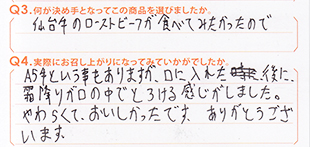 Q3.何が決め手となってこの商品を選びましたか。
仙台牛のローストビーフが食べてみたかったので
Q4.実際にお召し上がりになってみていかがでしたか。
A5牛という事もありますが、口に入れた後に、
霜降りが口の中でとろける感じがしました。
やわらくて、おいしかったです。ありがとうござ
います。